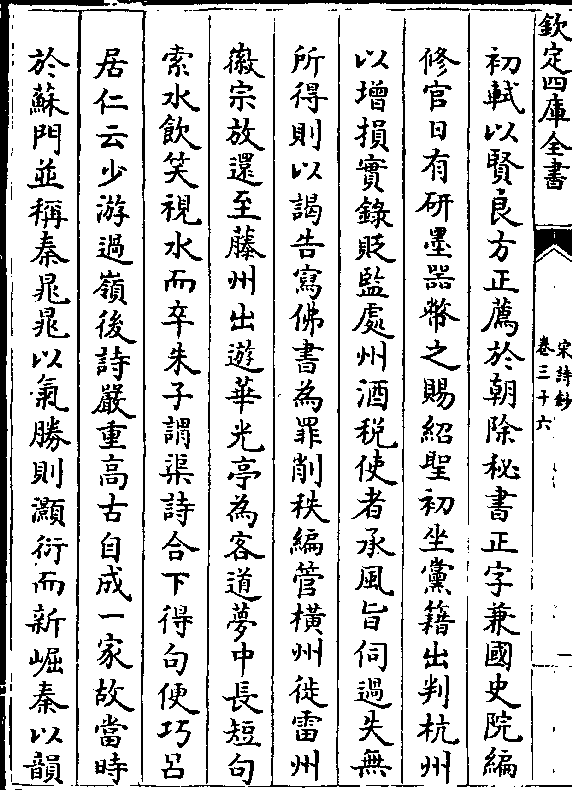 欽定四庫全書
宋詩鈔
卷三十六
初軾以賢良方正薦於朝除秘書正字兼國史院編
修官日有研墨器幣之賜紹聖初坐黨籍出判杭州
以增損實錄貶監處州酒稅使者承風旨伺過失無
所得則以謁告寫佛書為罪削秩編管橫州徙雷州
徽宗放還至藤州出遊華光亭為客道夢中長短句
索水飲笑視水而卒朱子謂渠詩合下得句便巧呂
居仁云少游過嶺後詩嚴重高古自成一家故當時
於蘇門並稱秦晁晁以氣勝則灝衍而新崛秦以韻